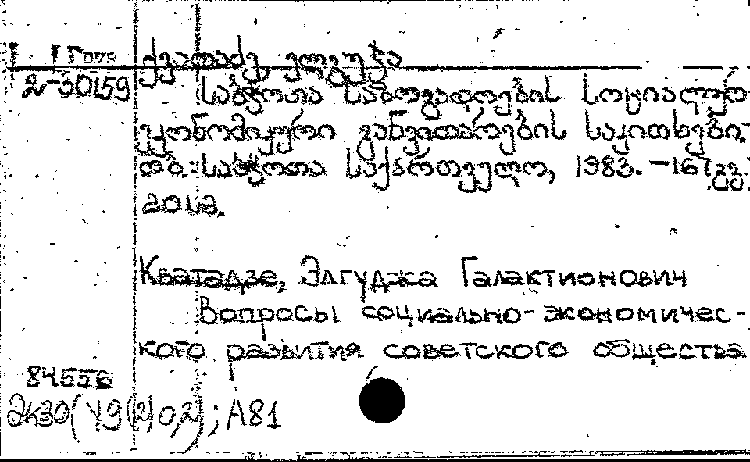 ქვათაძე ელგუჯა
2-30159
საბჭოთა საზოგადოების სოციალურ-
ეკონომიკური განვითარების საკითხები.
თბ.: საბჭოთა საქართველო, 1983. - 167 გვ.
20 სმ.
Кватадзе, Элгуджа Галактионович
Вопросы социально-экономичес-
кого развития советского общества
84556
2к30(У9(2)0,2); А81